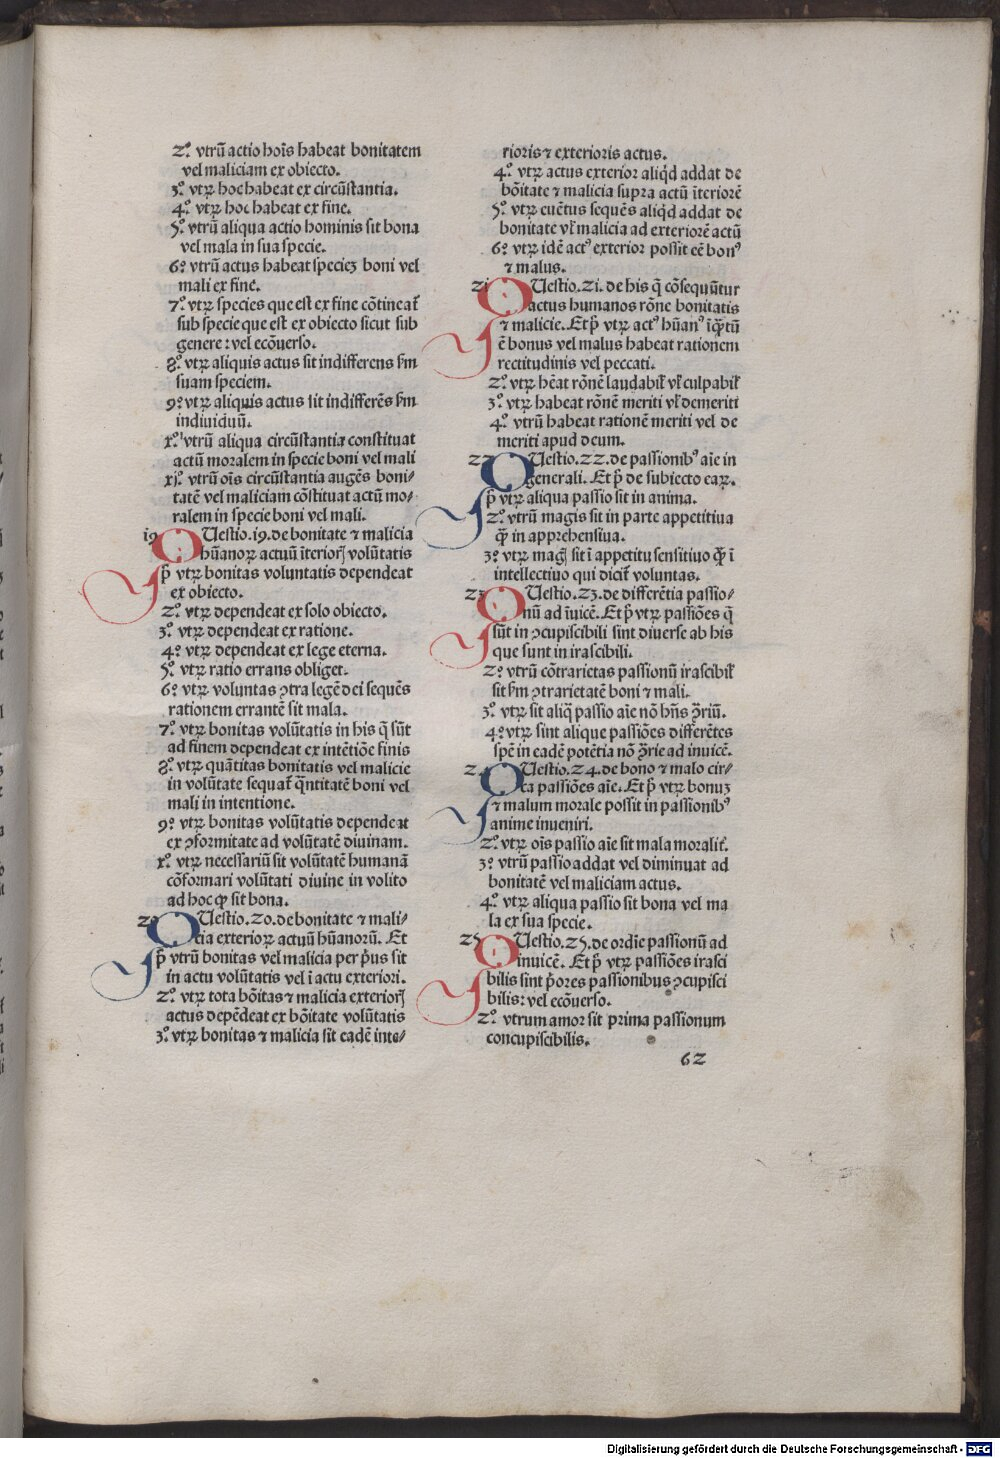 2º vtrũ actio hoĩs habeat bonitatem
vel maliciam ex obiecto.
3º vtꝝ hoc habeat ex circũstantia.
4º vtꝝ hoc habeat ex fine.
5º vtrũ aliqua actio hominis sit bona
vel mala in sua specie.
6º vtrũ actus habeat specieꝫ boni vel
mali ex fine.
7º vtꝝ species que est ex fine cõtineat᷑
sub specie que est ex obiecto sicut sub
genere: vel ecõuerso.
8º vtꝝ aliquis actus sit indifferens ẜm
suam speciem.
9º vtꝝ aliquis actus sit indifferẽs ẜm
indiuiduũ.
xº vtrũ aliqua circũstantia constituat
actũ moralem in specie boni vel mali
xjº vtrũ oĩs circũstantia augẽs boni-
tatẽ vel maliciam cõstituat actũ mo-
ralem in specie boni vel mali.
19 QUestio.19.de bonitate ⁊ malicia
hũanoꝝ actuũ ĩterioꝝ volũtatis
Et p̃ vtꝝ bonitas voluntatis dependeat
ex obiecto.
2º vtꝝ dependeat ex solo obiecto.
3º vtꝝ dependeat ex ratione.
4º vtꝝ dependeat ex lege eterna.
5º vtꝝ ratio errans obliget.
6º vtꝝ voluntas ꝯtra legẽ dei sequẽs
rationem errantẽ sit mala.
7º vtꝝ bonitas volũtatis in his q̃ sũt
ad finem dependeat ex intẽtiõe finis
8º vtꝝ quãtitas bonitatis vel malicie
in volũtate sequat᷑ q̃ntitatẽ boni vel
mali in intentione.
9º vtꝝ bonitas volũtatis dependeat
ex ꝯformitate ad volũtatẽ diuinam.
xº vtꝝ necessariũ sit volũtatẽ humanã
cõformari volũtati diuine in volito
ad hoc ꝙ sit bona.
20 QUestio.20.de bonitate ⁊ mali-
cia exterioꝝ actuũ hũanorũ. Et
p̃ vtrũ bonitas vel malicia per p̃us sit
in actu volũtatis vel ĩ actu exteriori.
2º vtꝝ tota bõitas ⁊ malicia exterioꝝ
actus depẽdeat ex bõitate volũtatis
3º vtꝝ bonitas ⁊ malicia sit eadẽ inte-
rioris ⁊ exterioris actus.
4º vtꝝ actus exterior aliqd addat de
bõitate ⁊ malicia supra actũ ĩteriorẽ
5º vtꝝ euẽtus sequẽs aliqd addat de
bonitate vl̃ malicia ad exteriorẽ actũ
6º vtꝝ idẽ actꝰ exterior possit eẽ bonꝰ
⁊ malus.
21 QUestio.21.de his q̃ cõsequũtur
actus humanos rõne bonitatis
⁊ malicie. Et p̃ vtꝝ actꝰ hũanꝰ ĩq̃tũ
ẽ bonus vel malus habeat rationem
rectitudinis vel peccati.
2º vtꝝ hẽat rõnẽ laudabil̃ vl̃ culpabil̃
3º vtꝝ habeat rõnẽ meriti vl̃ demeriti
4º vtrũ habeat rationẽ meriti vel de
meriti apud deum.
22 QUestio.22.de passionibꝰ aĩe in
generali. Et p̃ de subiecto eaꝝ.
p̃ vtꝝ aliqua passio sit in anima.
2º vtrũ magis sit in parte appetitiua
q̃ in apprehensiua.
3º vtꝝ mag̃ sit ĩ appetitu sensitiuo q̃ ĩ
intellectiuo qui dicit᷑ voluntas.
23 QUestio.23.de differẽtia passio-
nũ ad ĩuicẽ. Et p̃ vtꝝ passiões q̃
sũt in ꝯcupiscibili sint diuerse ab his
que sunt in irascibili.
2º vtrũ cõtrarietas passionũ irascibil̃
sit ẜm ꝯtrarietatẽ boni ⁊ mali.
3º vtꝝ sit aliq̃ passio aĩe nõ hñs ꝯ̃riũ.
4º vtꝝ sint alique passiões differẽtes
spẽ in eadẽ potẽtia nõ ꝯ̃rie ad inuicẽ.
24 QUestio.24.de bono ⁊ malo cir-
ca passiões aĩe. Et p̃ vtꝝ bonuꝫ
⁊ malum morale possit in passionibꝰ
anime inueniri.
2º vtꝝ oĩs passio aĩe sit mala moralit᷑.
3º vtrũ passio addat vel diminuat ad
bonitatẽ vel maliciam actus.
4º vtꝝ aliqua passio sit bona vel ma
la ex sua specie.
25 QUestio.25.de ordĩe passionũ ad
inuicẽ. Et p̃ vtꝝ passiões irasci
bilis sint p̃ores passionibus ꝯcupisci
bilis: vel ecõuerso.
2º vtrum amor sit prima passionum
concupiscibilis.
62
Digitalisierung gefördert durch die Deutsche Forschungsgemeinschaft - DFG